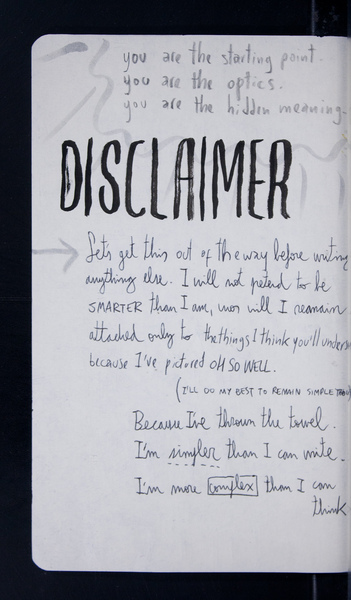 you are the starting point.
you are the optics.
you are the hidden meaning.
DISCLAIMER
Let's get this out of the way before writing
anything else. I will not pretend to be
SMARTER than I am, nor will I remain
attached only to the things I think you'll
because I've pictured OH SO WELL.
(I'LL DO MY BEST TO REMAIN SIMPLE
Because I've thrown the towel.
I'm simpler than I can write.
I'm more complex than I can
think